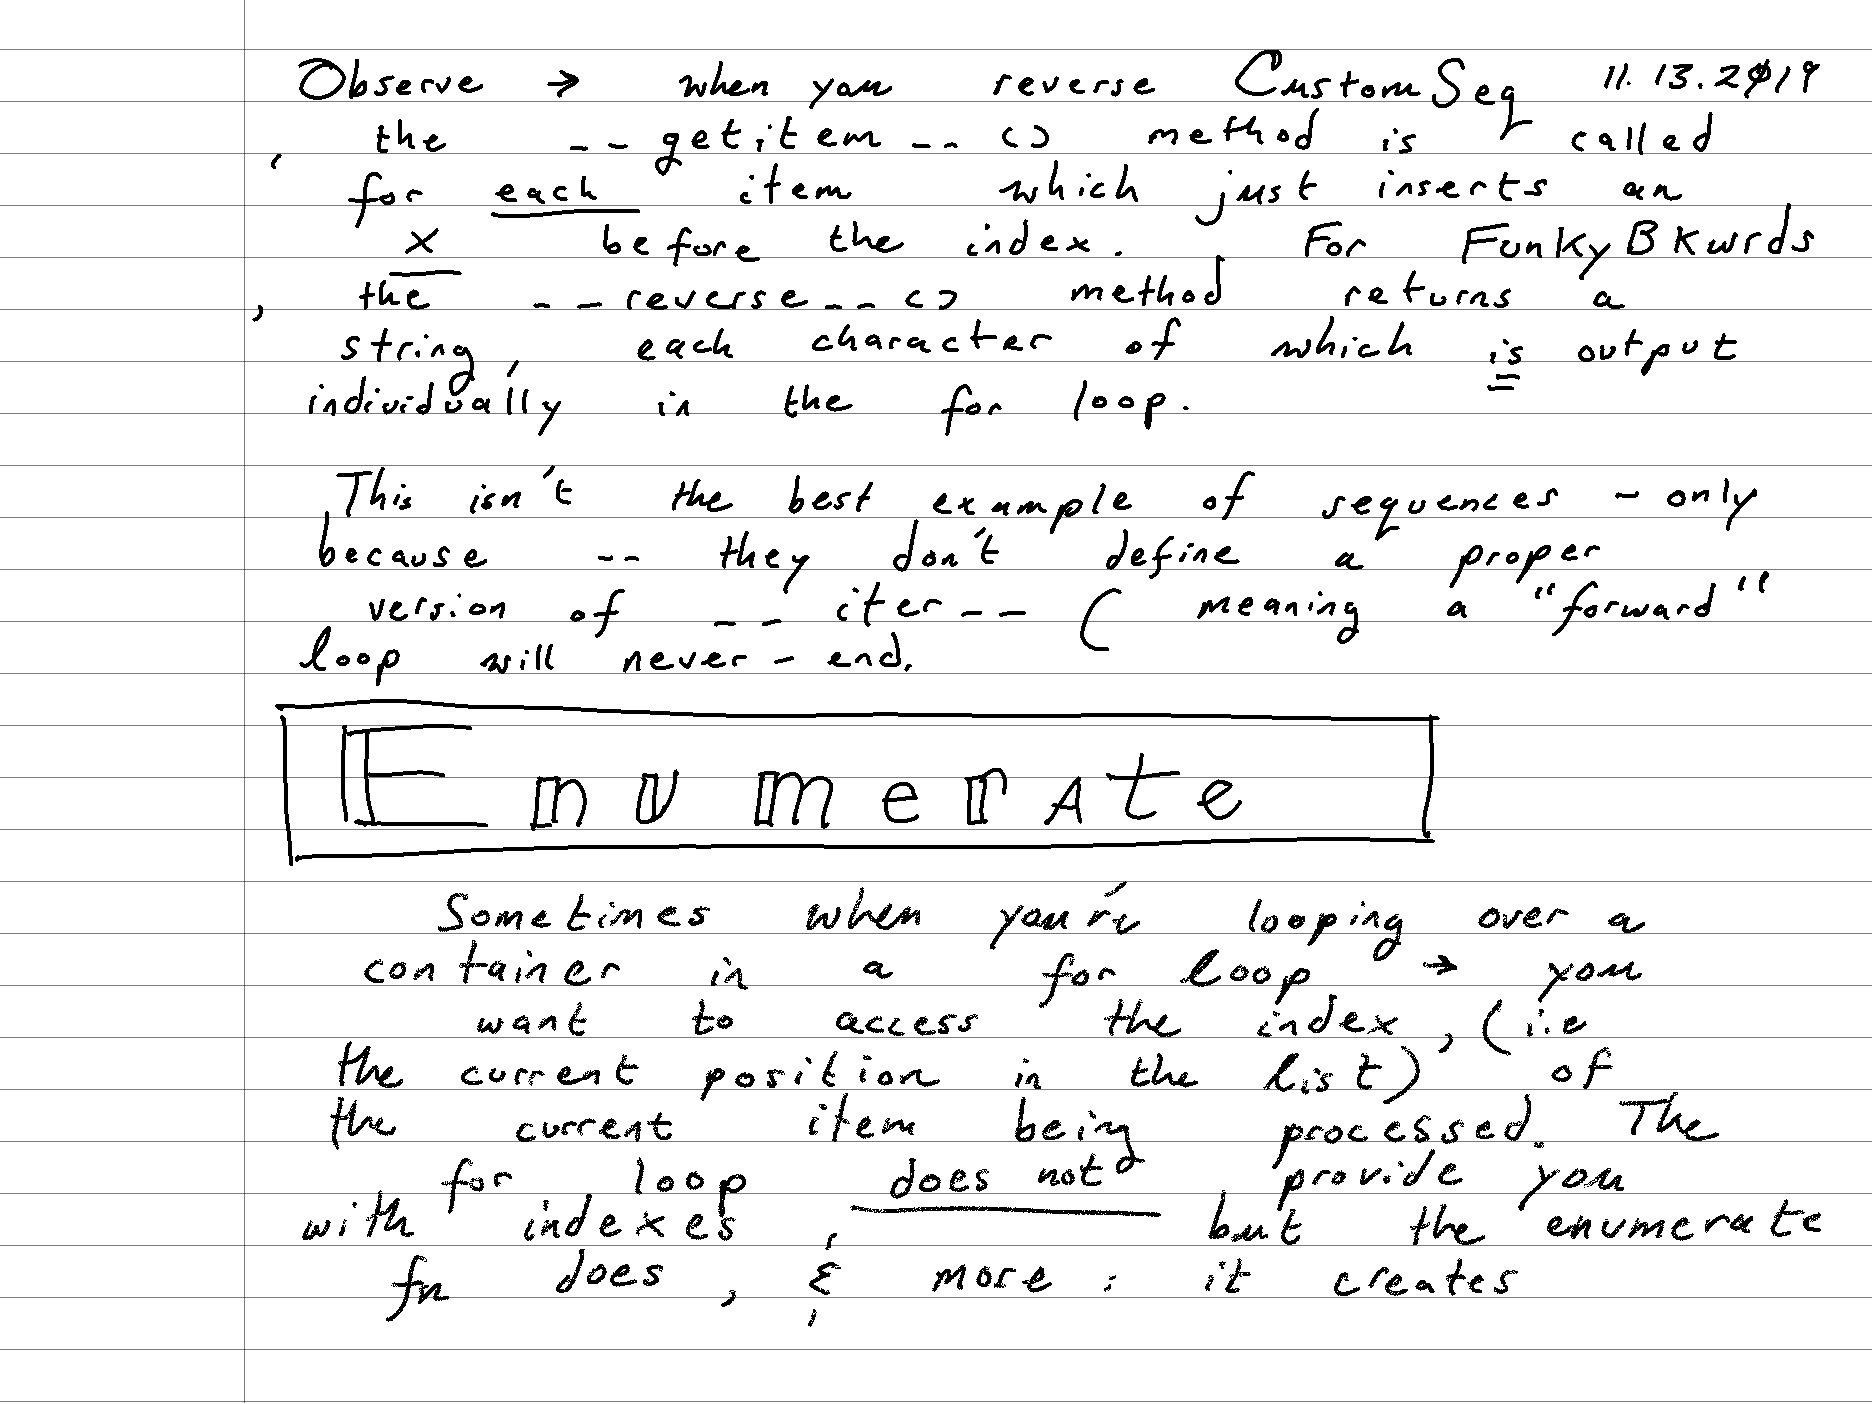 Observe → when you reverse CustomSeq 11.13.2019
, the __getitem__() method is called
for each item which just inserts an
x before the index. For FunkyBKwrds
, the __reverse__() method returns a
string, each character of which is output
individually in the for loop.
This isn't the best example of sequences - only
because -- they don't define a proper
version of __iter__ ( meaning a "forward"
loop will never-end.
Enumerate
Sometimes when you're looping over a
container in a for loop → you
want to access the index, (i.e
the current position in the list) of
the current item being processed. The
for loop does not provide you
with indexes, but the enumerate
fn does, & more: it creates